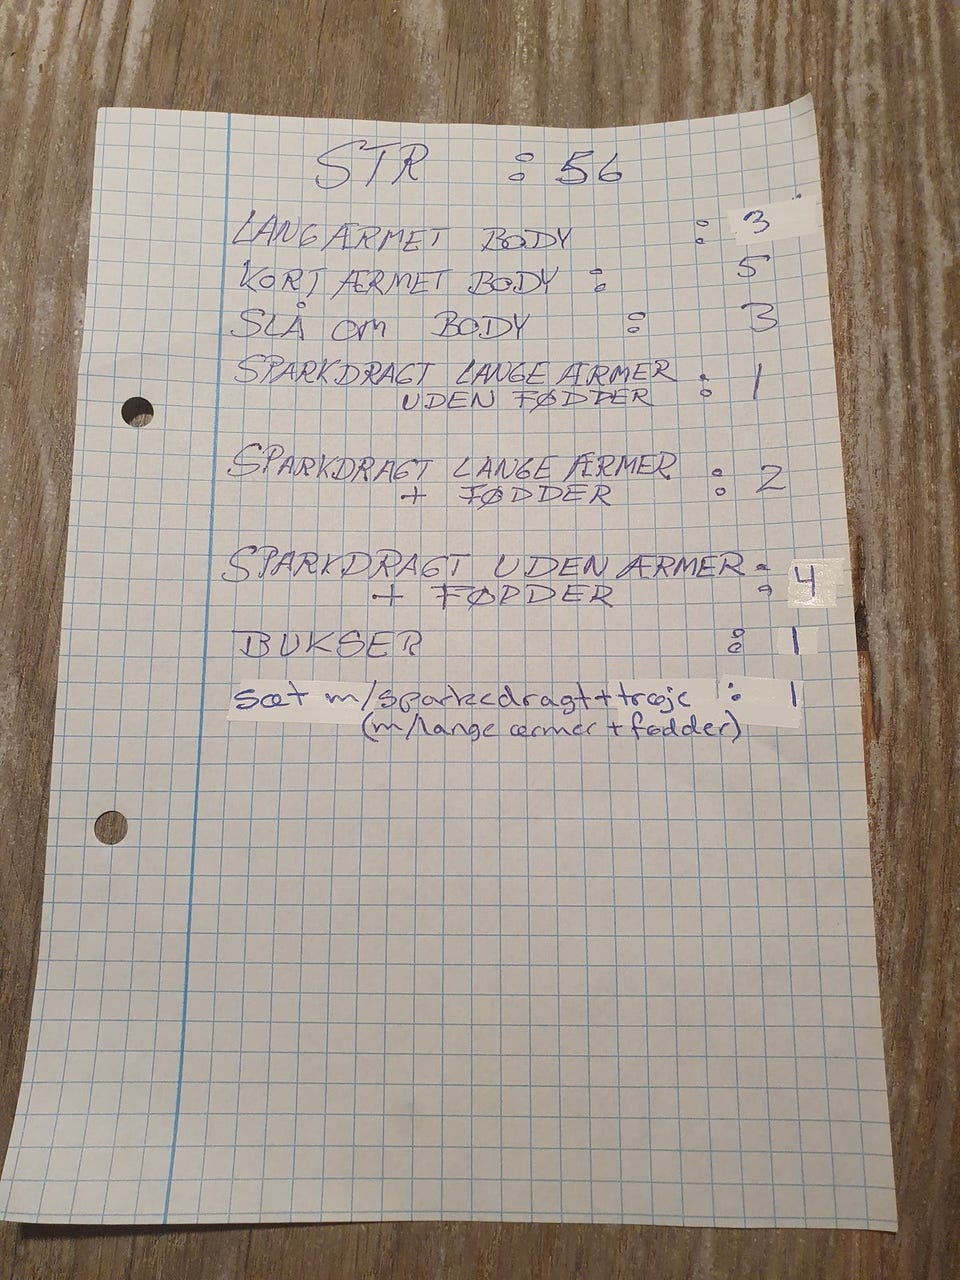 STR : 56
LANGÆRMET BODY : 3
KORTÆRMET BODY : 5
SLÅ OM BODY : 3
SPARKDRAGT LANGE ÆRMER : 1
UDEN FØDDER
SPARKDRAGT LANGE ÆRMER : 2
+ FØDDER
SPARKDRAGT UDEN ÆRMER : 4
+ FØDDER
BUKSER : 1
sæt m/sparkedragt+trøje : 1
(m/lange ærmer + fødder)